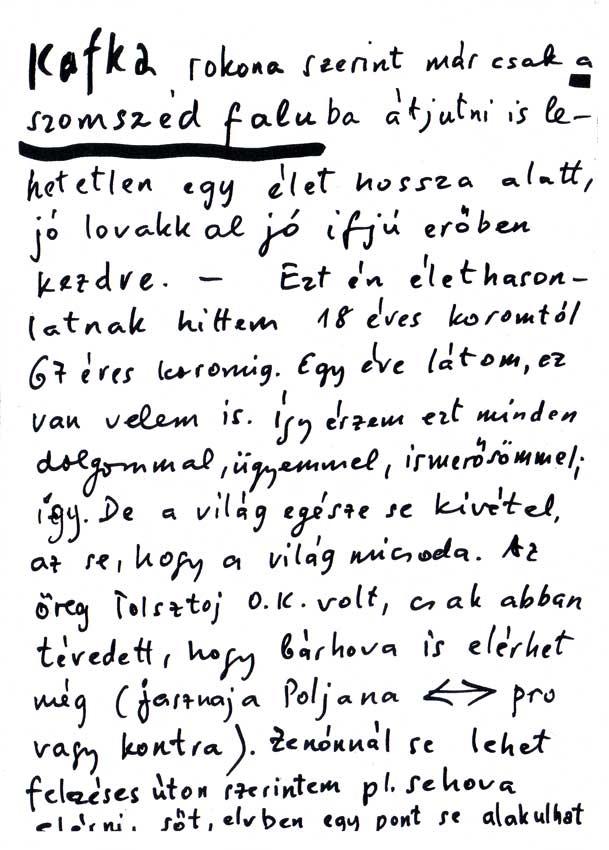 Kafka rokona szerint már csak a
szomszéd faluba átjutni is le-
hetetlen egy élet hossza alatt,
jó lovakkal jó ifjú erőben
kezdve. – Ezt én élethason-
latnak hittem 18 éves koromtól
67 éves koromig. Egy éve látom, ez
van velem is. Így érzem ezt minden
dolgommal, ügyemmel, ismerősömmel;
így. De a világ egésze se kivétel,
az se, hogy a világ micsoda. Az
öreg Tolsztoj O.K. volt, csak abban
tévedett, hogy bárhova is elérhet
még (Jasznaja Poljana ⟷ pro
vagy kontra). Zenónnál se lehet
felezéses úton szerintem pl. sehova
elérni, sőt, elvben egy pont se alakulhat